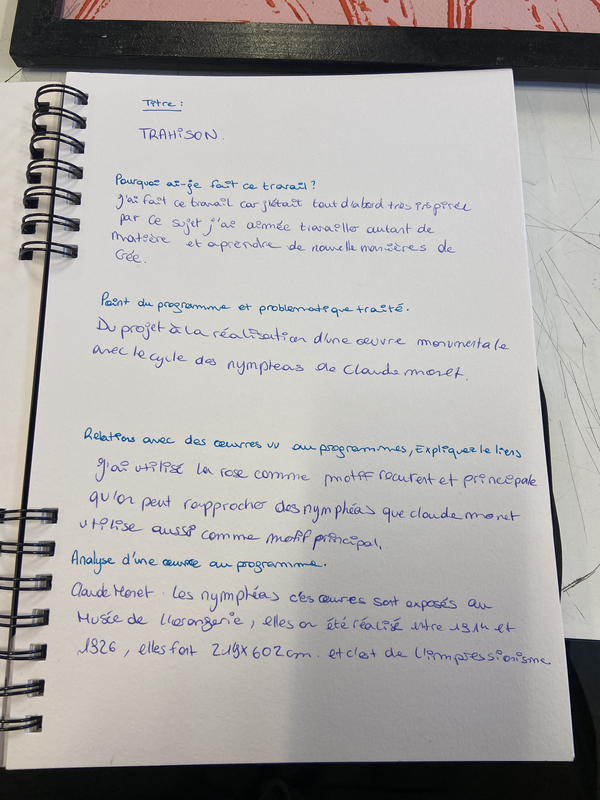 Titre :
TRAHISON.
Pourquoi ai-je fait ce travail ?
J'ai fait ce travail car j'était tout d'abord très inspirée
par ce sujet j'ai aimée travailler autant de
matière et aprendre de nouvelle manières de
Crée.
Point du programme et problematique traité.
Du projet à la réalisation d'une œuvre monumentale
avec le cycle des nympheas de Claude monet.
Relations avec des œuvres vu au programmes, Expliquez le liens
J'ai utilisé la rose comme motif récurent et principale
qu'on peut rapprocher des nymphéas que claude monet
utilise aussi comme motif principal.
Analyse d'une œuvre au programme.
Claude Monet. les nymphéas c'es œuvres sont exposés au
Musée de l'orangerie, elles on été réalisé entre 1914 et
1926, elles font 219x602cm. et c'est de l'impressionisme